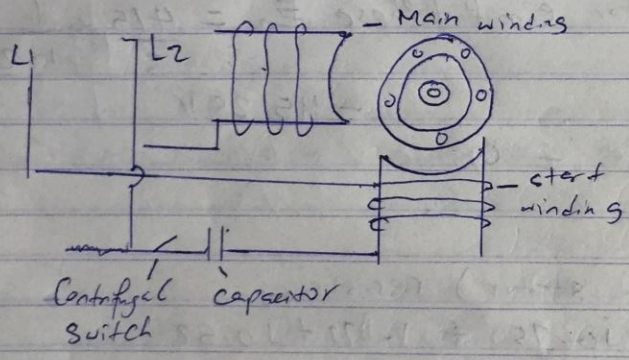 Main winding
L1
L2
start
winding
Centrifugal
switch
capacitor